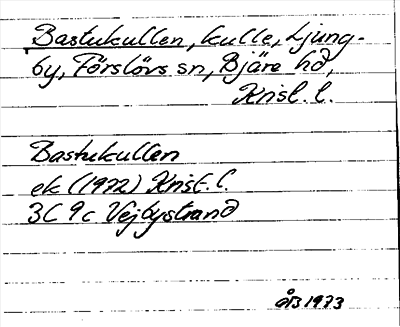 Bastukullen, kulle, Ljung-
by, Förslövs sn, Bjäre hd,
Krist. l.
Bastukullen
ek (1972) Krist. l.
3C 9c Vejbystrand
ÅB 1973